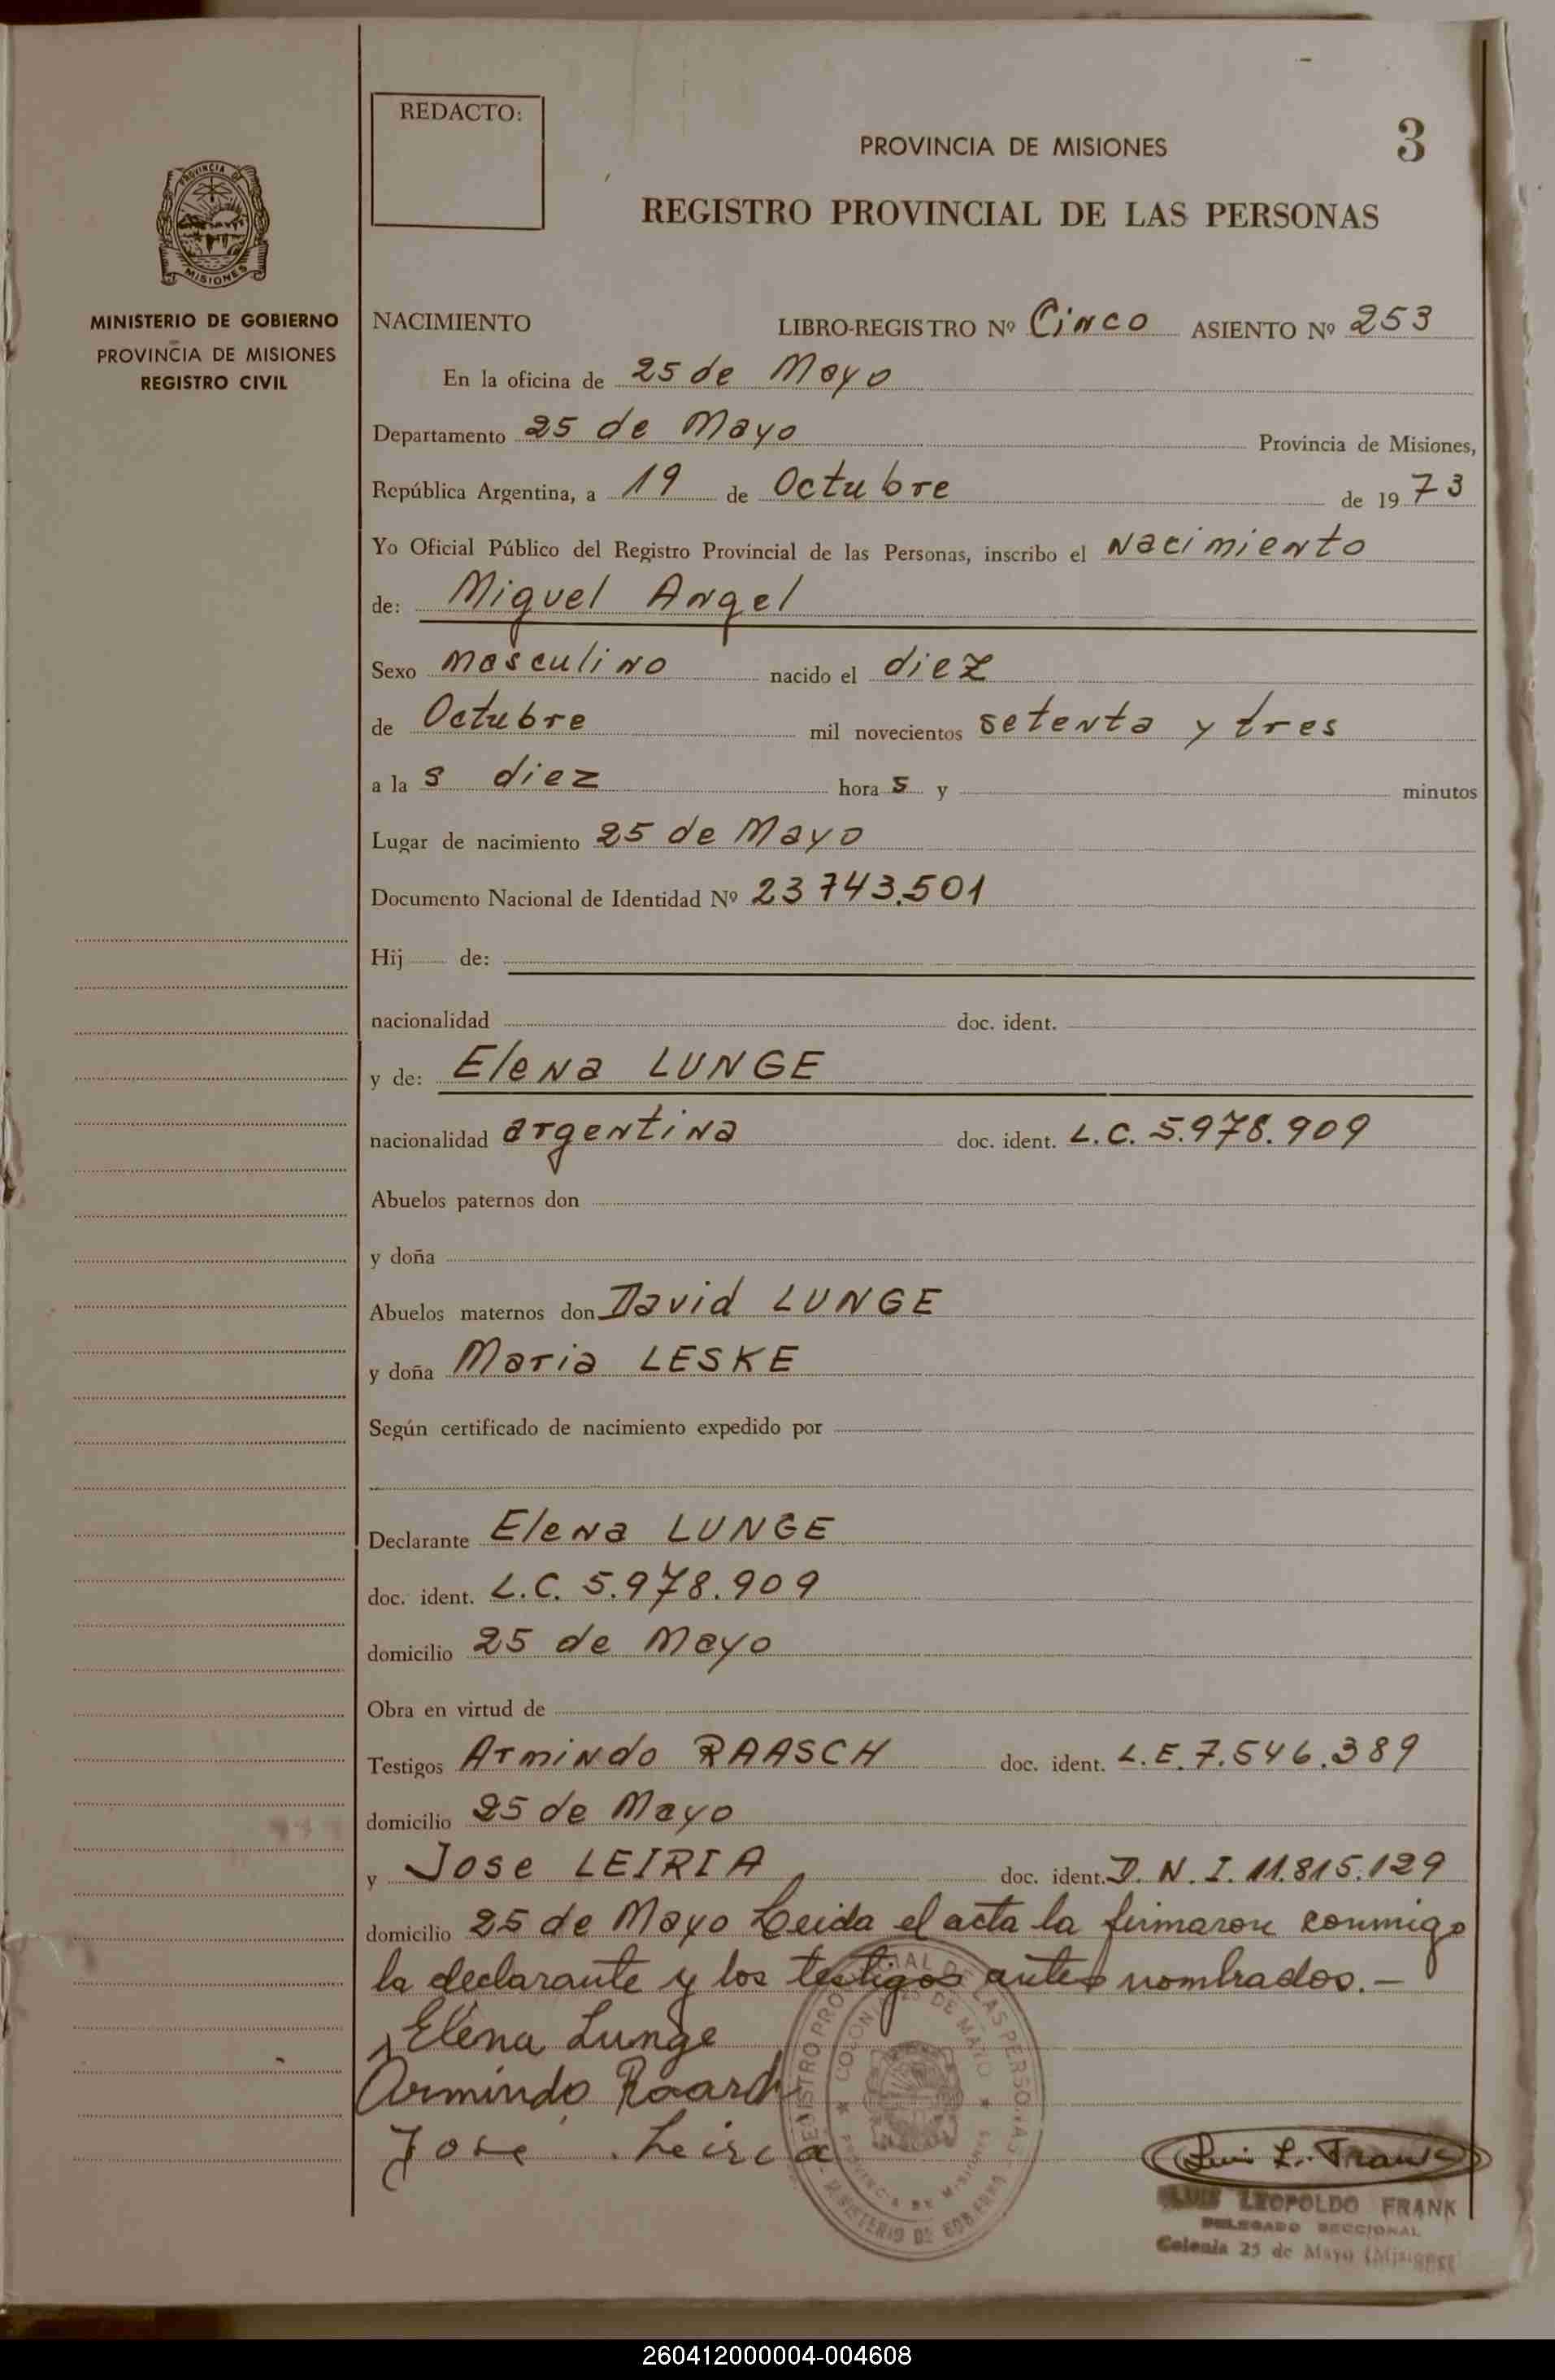 REDACTO:
PROVINCIA DE MISIONES
3
REGISTRO PROVINCIAL DE LAS PERSONAS
PROVINCIA DE
MISIONES
MINISTERIO DE GOBIERNO
PROVINCIA DE MISIONES
REGISTRO CIVIL
NACIMIENTO LIBRO-REGISTRO Nº Cinco ASIENTO Nº 253
En la oficina de 25 de Mayo
Departamento 25 de Mayo Provincia de Misiones,
República Argentina, a 19 de Octubre de 1973
Yo Oficial Público del Registro Provincial de las Personas, inscribo el nacimiento
de: Miguel Angel
Sexo masculino nacido el diez
de Octubre mil novecientos setenta y tres
a la s diez hora s y minutos
Lugar de nacimiento 25 de Mayo
Documento Nacional de Identidad Nº 23743.501
Hij de:
nacionalidad doc. ident.
y de: Elena LUNGE
nacionalidad argentina doc. ident. L.C. 5.978.909
Abuelos paternos don
y doña
Abuelos maternos don David LUNGE
y doña Maria LESKE
Según certificado de nacimiento expedido por
Declarante Elena LUNGE
doc. ident. L.C. 5.978.909
domicilio 25 de Mayo
Obra en virtud de
Testigos Armindo RAASCH doc. ident. L.E. 7.546.389
domicilio 25 de Mayo
y Jose LEIRIA doc. ident. D.N.I. 11.815.129
domicilio 25 de Mayo Leida el acta la firmaron conmigo
la declarante y los testigos antes nombrados.-
Elena Lunge
Armindo Raasch
José Leiria
REGISTRO PROVINCIAL DE LAS PERSONAS
COLONIA 25 DE MAYO
PROVINCIA DE MISIONES
MINISTERIO DE GOBIERNO
Luis L. Frank
LUIS LEOPOLDO FRANK
DELEGADO SECCIONAL
Colonia 25 de Mayo (Misiones)
260412000004-004608